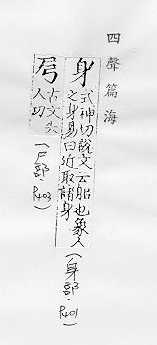 四聲篇海
身
式神切說文云船也象人
之身易曰近取諸身（身部．P401）
古文
人切（尸部 P403）